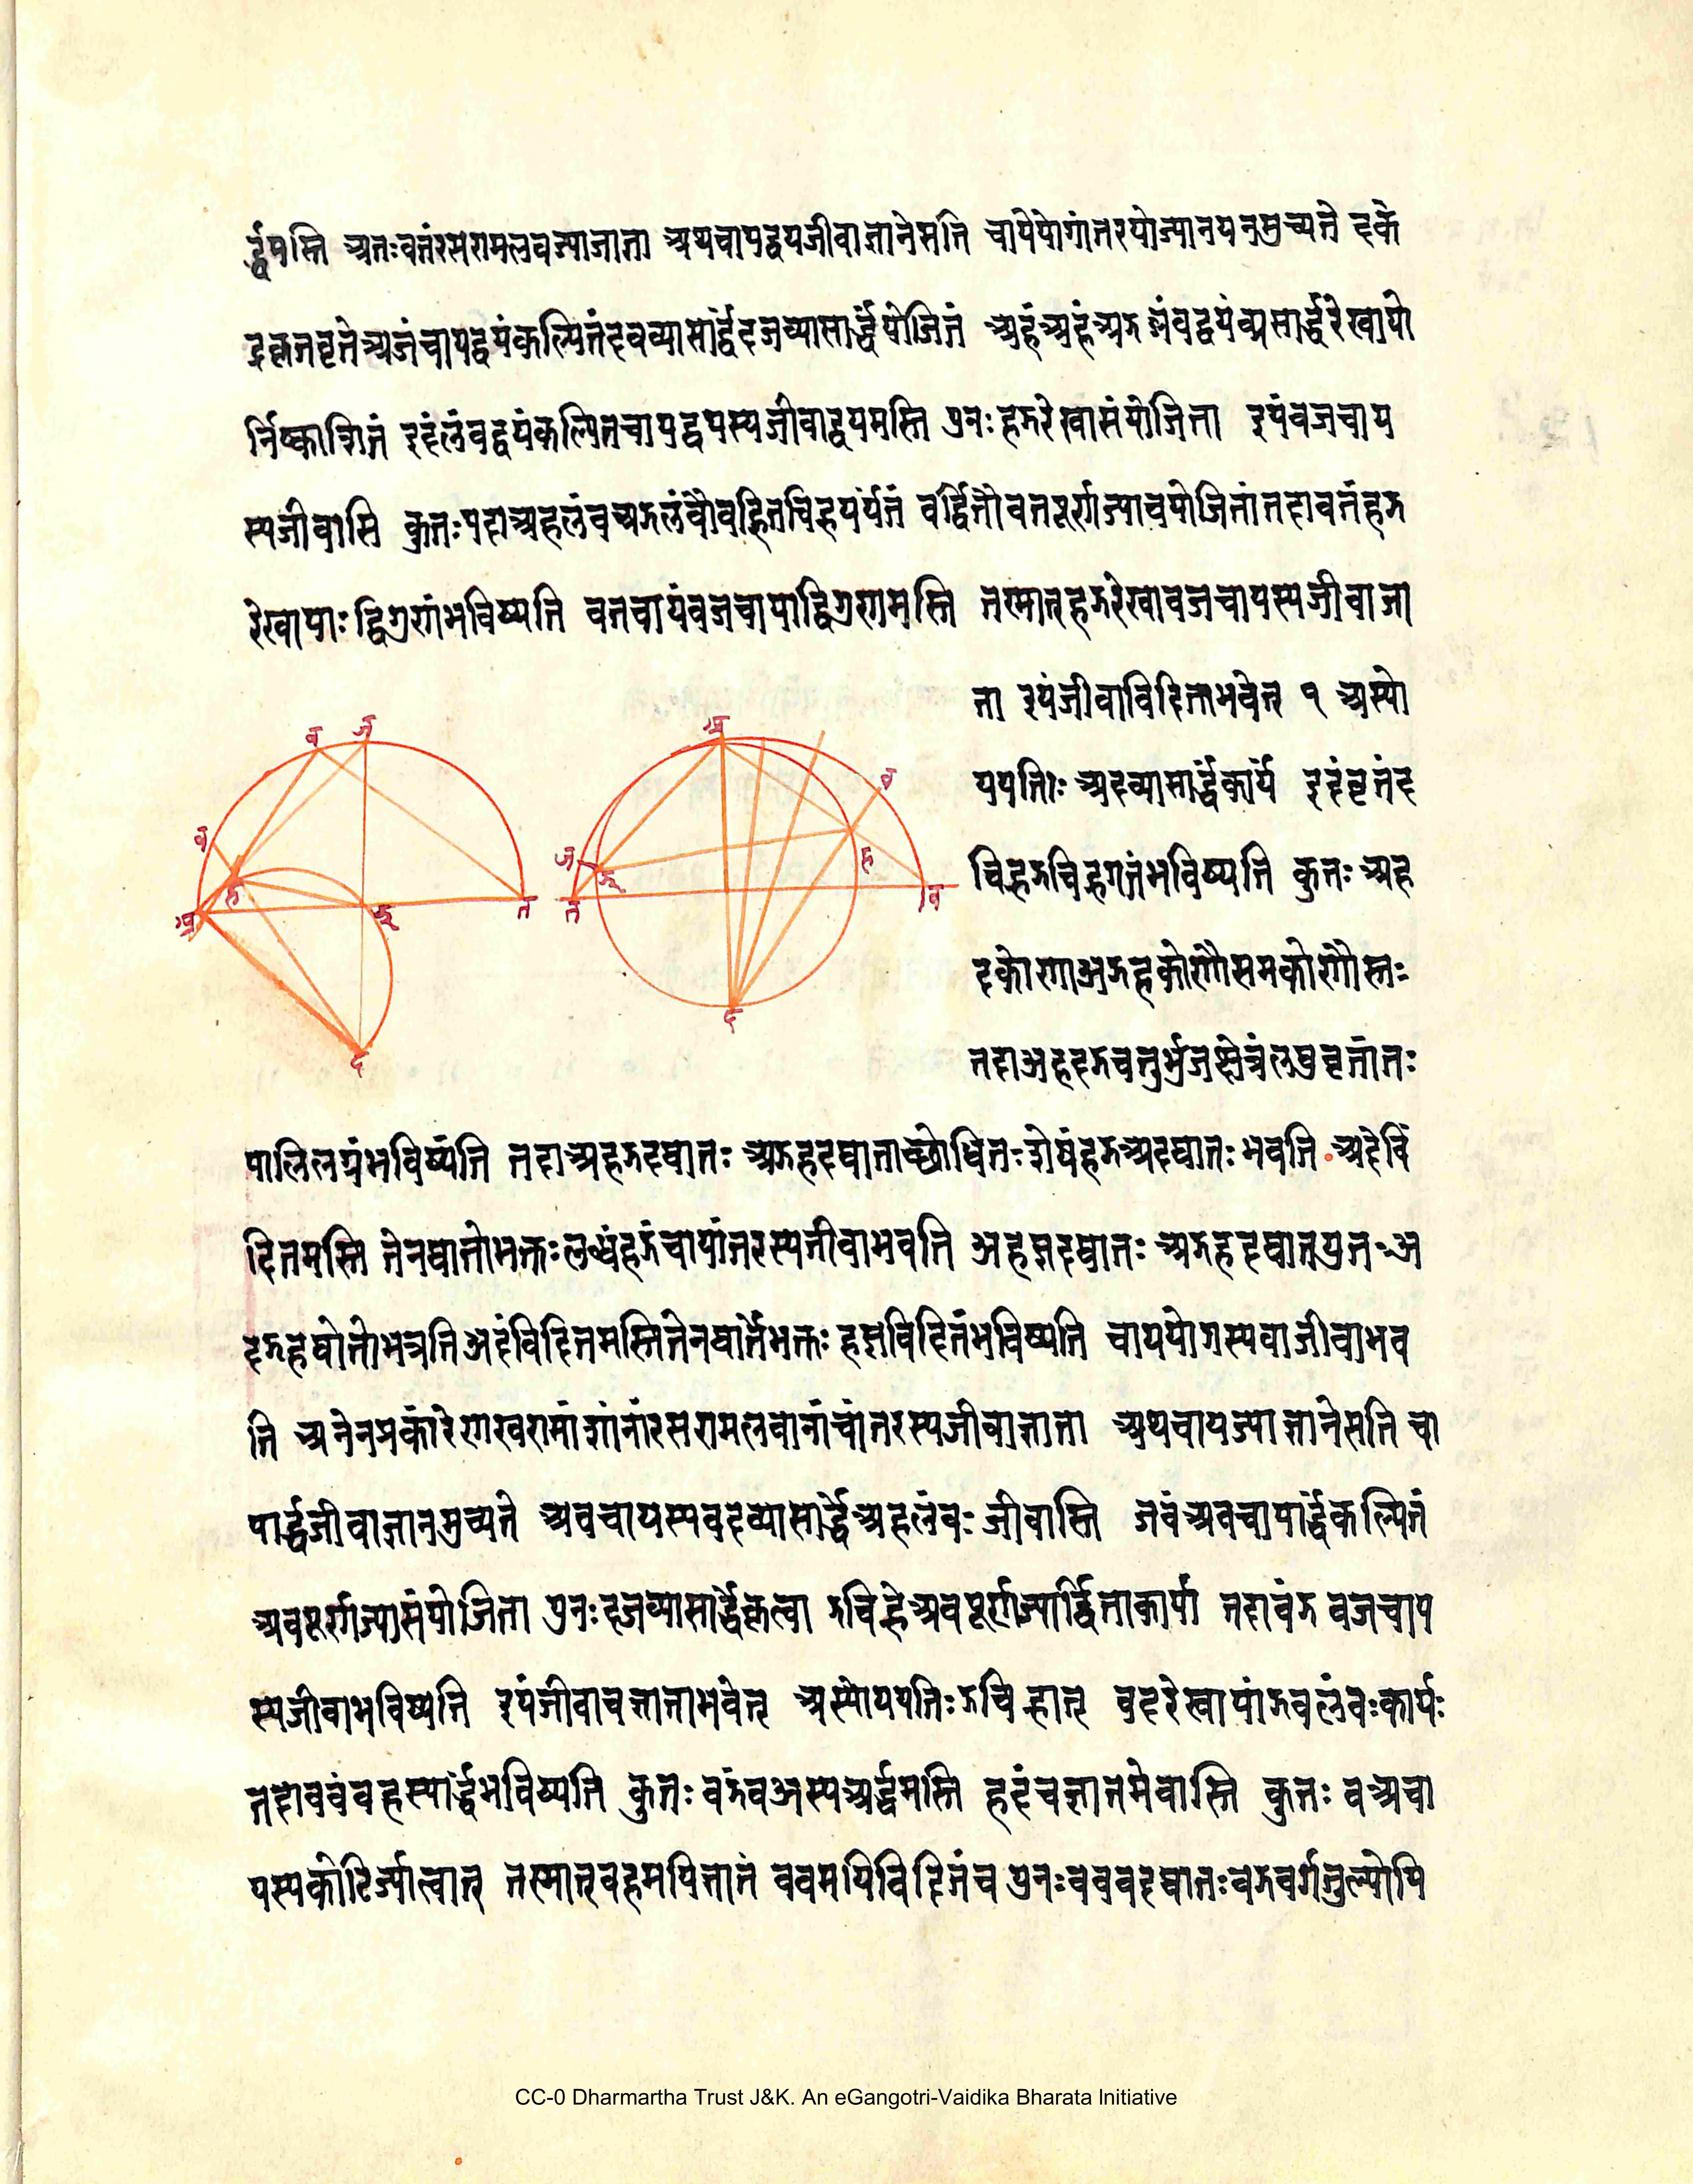 र्द्धमस्ति अतःवतंरसरामलवज्याजाता अथचापद्वयजीवाज्ञानेसति चापयोगांतरयोर्ज्यानयनमुच्यते दके
द्रकृतवृत्तेअजंचापद्वयंकल्पितंदबव्यासार्द्धेदजव्यासार्द्धंयोजितं अहंअहंअझलंबद्वयंव्यासार्द्धरेखायो
र्निष्काशितं इदंलंबद्वयंकल्पितचापद्वयस्यजीवाद्वयमस्ति पुनःहझरेखासंयोजिता इयंबजचाप
स्यजीवास्ति कुतःयदाअहलंबअझलंबौवहितचिह्नपर्यंतं वर्द्धितौवतपूर्णज्याचयोजितांतदावतंहझ
रेखायाःद्विगुणंभविष्यति वतचापंबजचापाद्द्विगुणमस्ति तस्मात्हझरेखाबजचापस्यजीवाजा
ता इयंजीवाविदिताभवेत् १ अस्यो
पपत्तिः अदव्यासार्द्धंकार्यं इदंवृत्तंह
चिह्नझचिह्नगतंभविष्यति कुतः अह
दकोणअझदकोणौसमकोणौस्तः
तदाअहदझचतुर्भुजक्षेत्रंलघुवृत्तांतः
पालिलग्नंभविष्यति तदाअहझदघातः अझहदघाताच्छोधितःशेषंहझअदघातः भवति अदंवि
दितमस्ति तेनघातोभक्तःलब्धंहझंचापांतरस्यजीवाभवति अहझदघातः अझहदघातयुतःअ
दझहघातोभवति अदंविदितमस्तितेनघातोभक्तः हझविदितंभविष्यति चापयोगस्यवाजीवाभव
ति अनेनप्रकारेणखरामांशानांरसरामलवानांचांतरस्यजीवाज्ञाता अथचापज्याज्ञानेसति चा
पार्द्धजीवाज्ञानमुच्यते अबचापस्यबदव्यासार्द्धेअहलंबः जीवास्ति जबंअबचापार्द्धंकल्पितं
अबपूर्णज्यासंयोजिता पुनःदजव्यासार्द्धंकृत्वा झचिह्नेअबपूर्णज्यार्द्धिताकार्या तदाबंझ बजचाप
स्यजीवाभविष्यति इयंजीवाचज्ञाताभवेत् अस्योपपत्तिःझचिह्नात् बदरेखायांझवलंबःकार्यः
तदाबवंबहस्यार्द्धंभविष्यति कुतः बझंबअस्यअर्द्धमस्ति हदंचज्ञातमेवास्ति कुतः बअचा
पस्यकोटिर्ज्यात्वात् तस्मात्बहमपिज्ञातं बवमपिविदितंच पुनःबवबदघातःबझवर्गतुल्योस्ति
ब
ज
व
ह
अ
झ
त
द
अ
ब
ज
झ
ह
त
व
द
CC-0 Dharmartha Trust J&K. An eGangotri-Vaidika Bharata Initiative